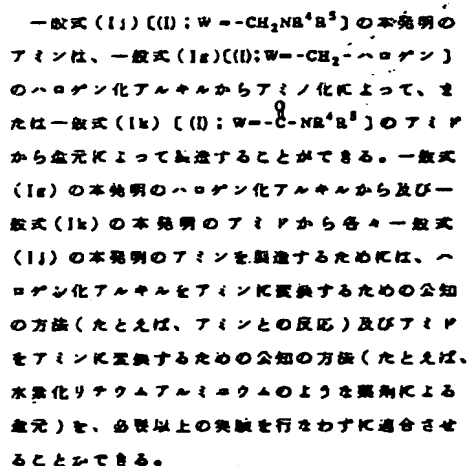 一般式(Ij)〔(I);W=-CH2NR4R5〕の本発明の
アミンは、一般式(Ig)[(I);W=-CH2-ハロゲン]
のハロゲン化アルキルからアミノ化によって、ま
O
たは一般式(Ik)〔(I);W=-C-NR4R5〕のアミド
から還元によって製造することができる。一般式
(Ig)の本発明のハロゲン化アルキルから及び一
般式(Ik)の本発明のアミドから各々一般式
(Ij)の本発明のアミンを製造するためには、ハ
ロゲン化アルキルをアミンに変換するための公知
の方法(たとえば、アミンとの反応)及びアミド
をアミンに変換するための公知の方法(たとえば、
水素化リチウムアルミニウムのような薬剤による
還元)を、必要以上の実験を行なわずに適合させ
ることができる。